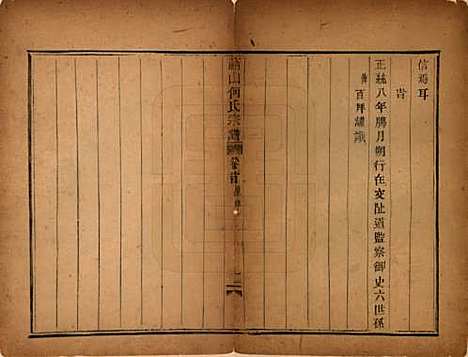 信焉耳
峕
正統八年臈月朔行在交趾道監察御史六世孫
百拜謹識
山何氏宗譜
卷首